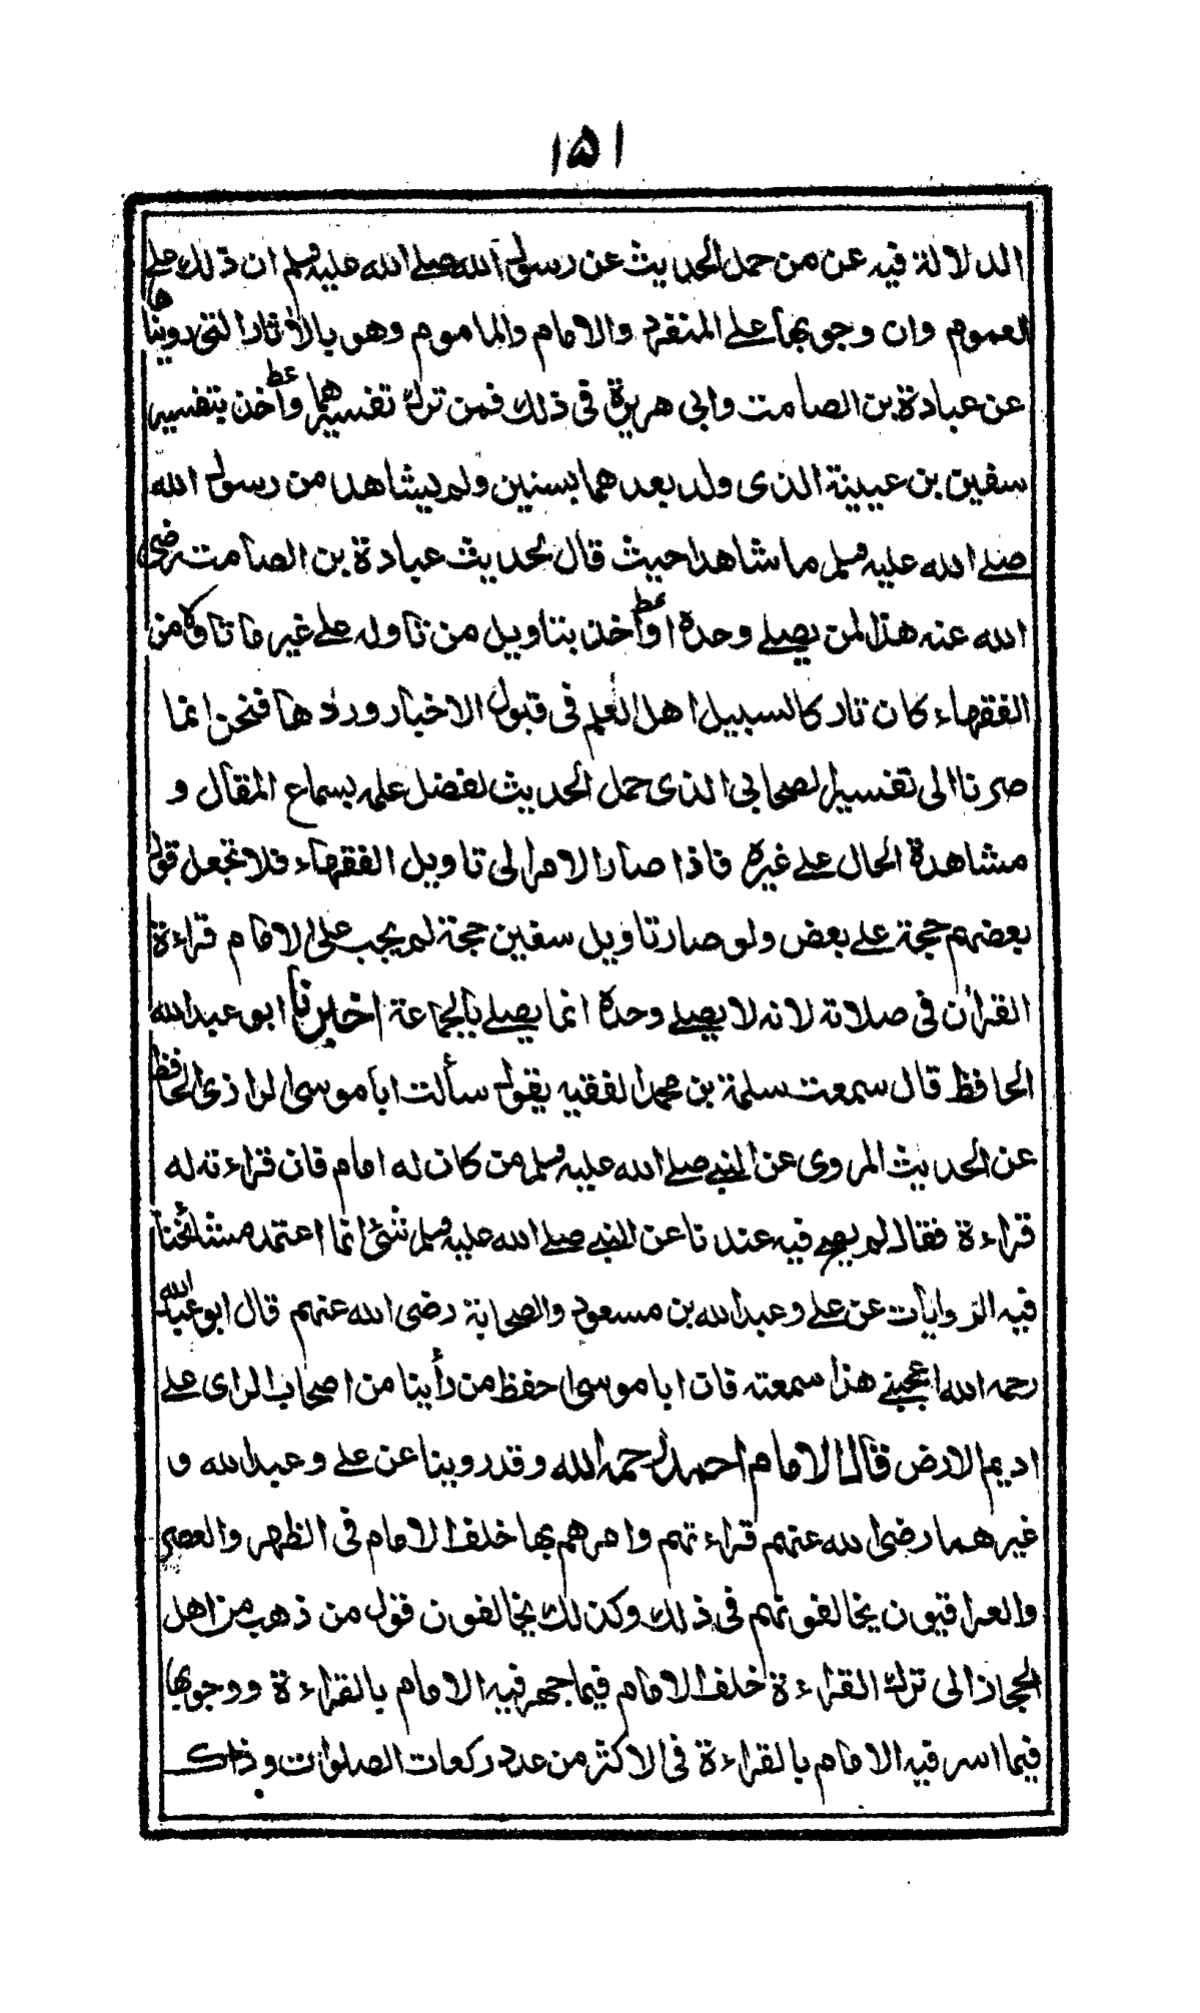 ١٥١
الدلالة فيه عن من حمل الحديث عن رسول الله صلى الله عليه وسلم ان ذلك على
العموم وان وجوبها على المنفرد والامام والماموم وهو بالآثار التي رويناها
عن عبادة بن الصامت وابي هريرة في ذلك فمن ترك تفسيرهما واخذ بتفسير
سفين بن عيينة الذي ولد بعدهما بسنين ولم يشاهد من رسول الله
صلى الله عليه وسلم ما شاهدا حيث قال لحديث عبادة بن الصامت رضي
الله عنه هذا لمن يصلي وحده او اخذ بتاويل من تاوله على غير ما تاولاه من
الفقهاء كان تاركا لسبيل اهل العلم في قبول الاخبار وردها فنحن انما
صرنا الى تفسير الصحابي الذي حمل الحديث لفضل علمه بسماع المقال و
مشاهدة الحال على غيره فاذا صار الامر الى تاويل الفقهاء فلا تجعل قول
بعضهم حجة على بعض ولو صار تاويل سفين حجة لم يجب على الامام قراءة
القرأن في صلاته لانه لا يصلي وحده انما يصلي بالجماعة اخبرنا ابو عبد الله
الحافظ قال سمعت سلمة بن محمد الفقيه يقول سألت ابا موسى الرازي الحافظ
عن الحديث المروي عن النبي صلى الله عليه وسلم من كان له امام فان قراءته له
قراءة فقال لم يصح فيه عندنا عن النبي صلى الله عليه وسلم شئ انما اعتمد مشائخنا
فيه الروايات عن علي وعبد الله بن مسعود والصحابة رضي الله عنهم قال ابو عبد الله
رحمه الله اعجبني هذا سمعته فان ابا موسى احفظ من رأينا من اصحاب الراى على
اديم الارض قال الامام احمد رحمه الله وقد روينا عن علي وعبد الله و
غيرهما رضي الله عنهم قراءتهم وامرهم بها خلف الامام في الظهر والعصر
والعراقيون يخالفونهم في ذلك وكذلك يخالفون قول من ذهب من اهل
الحجاز الى ترك القراءة خلف الامام فيما جهر فيه الامام بالقراءة ووجوبها
فيما اسر فيه الامام بالقراءة في الاكثر من عدد ركعات الصلوات وذلك